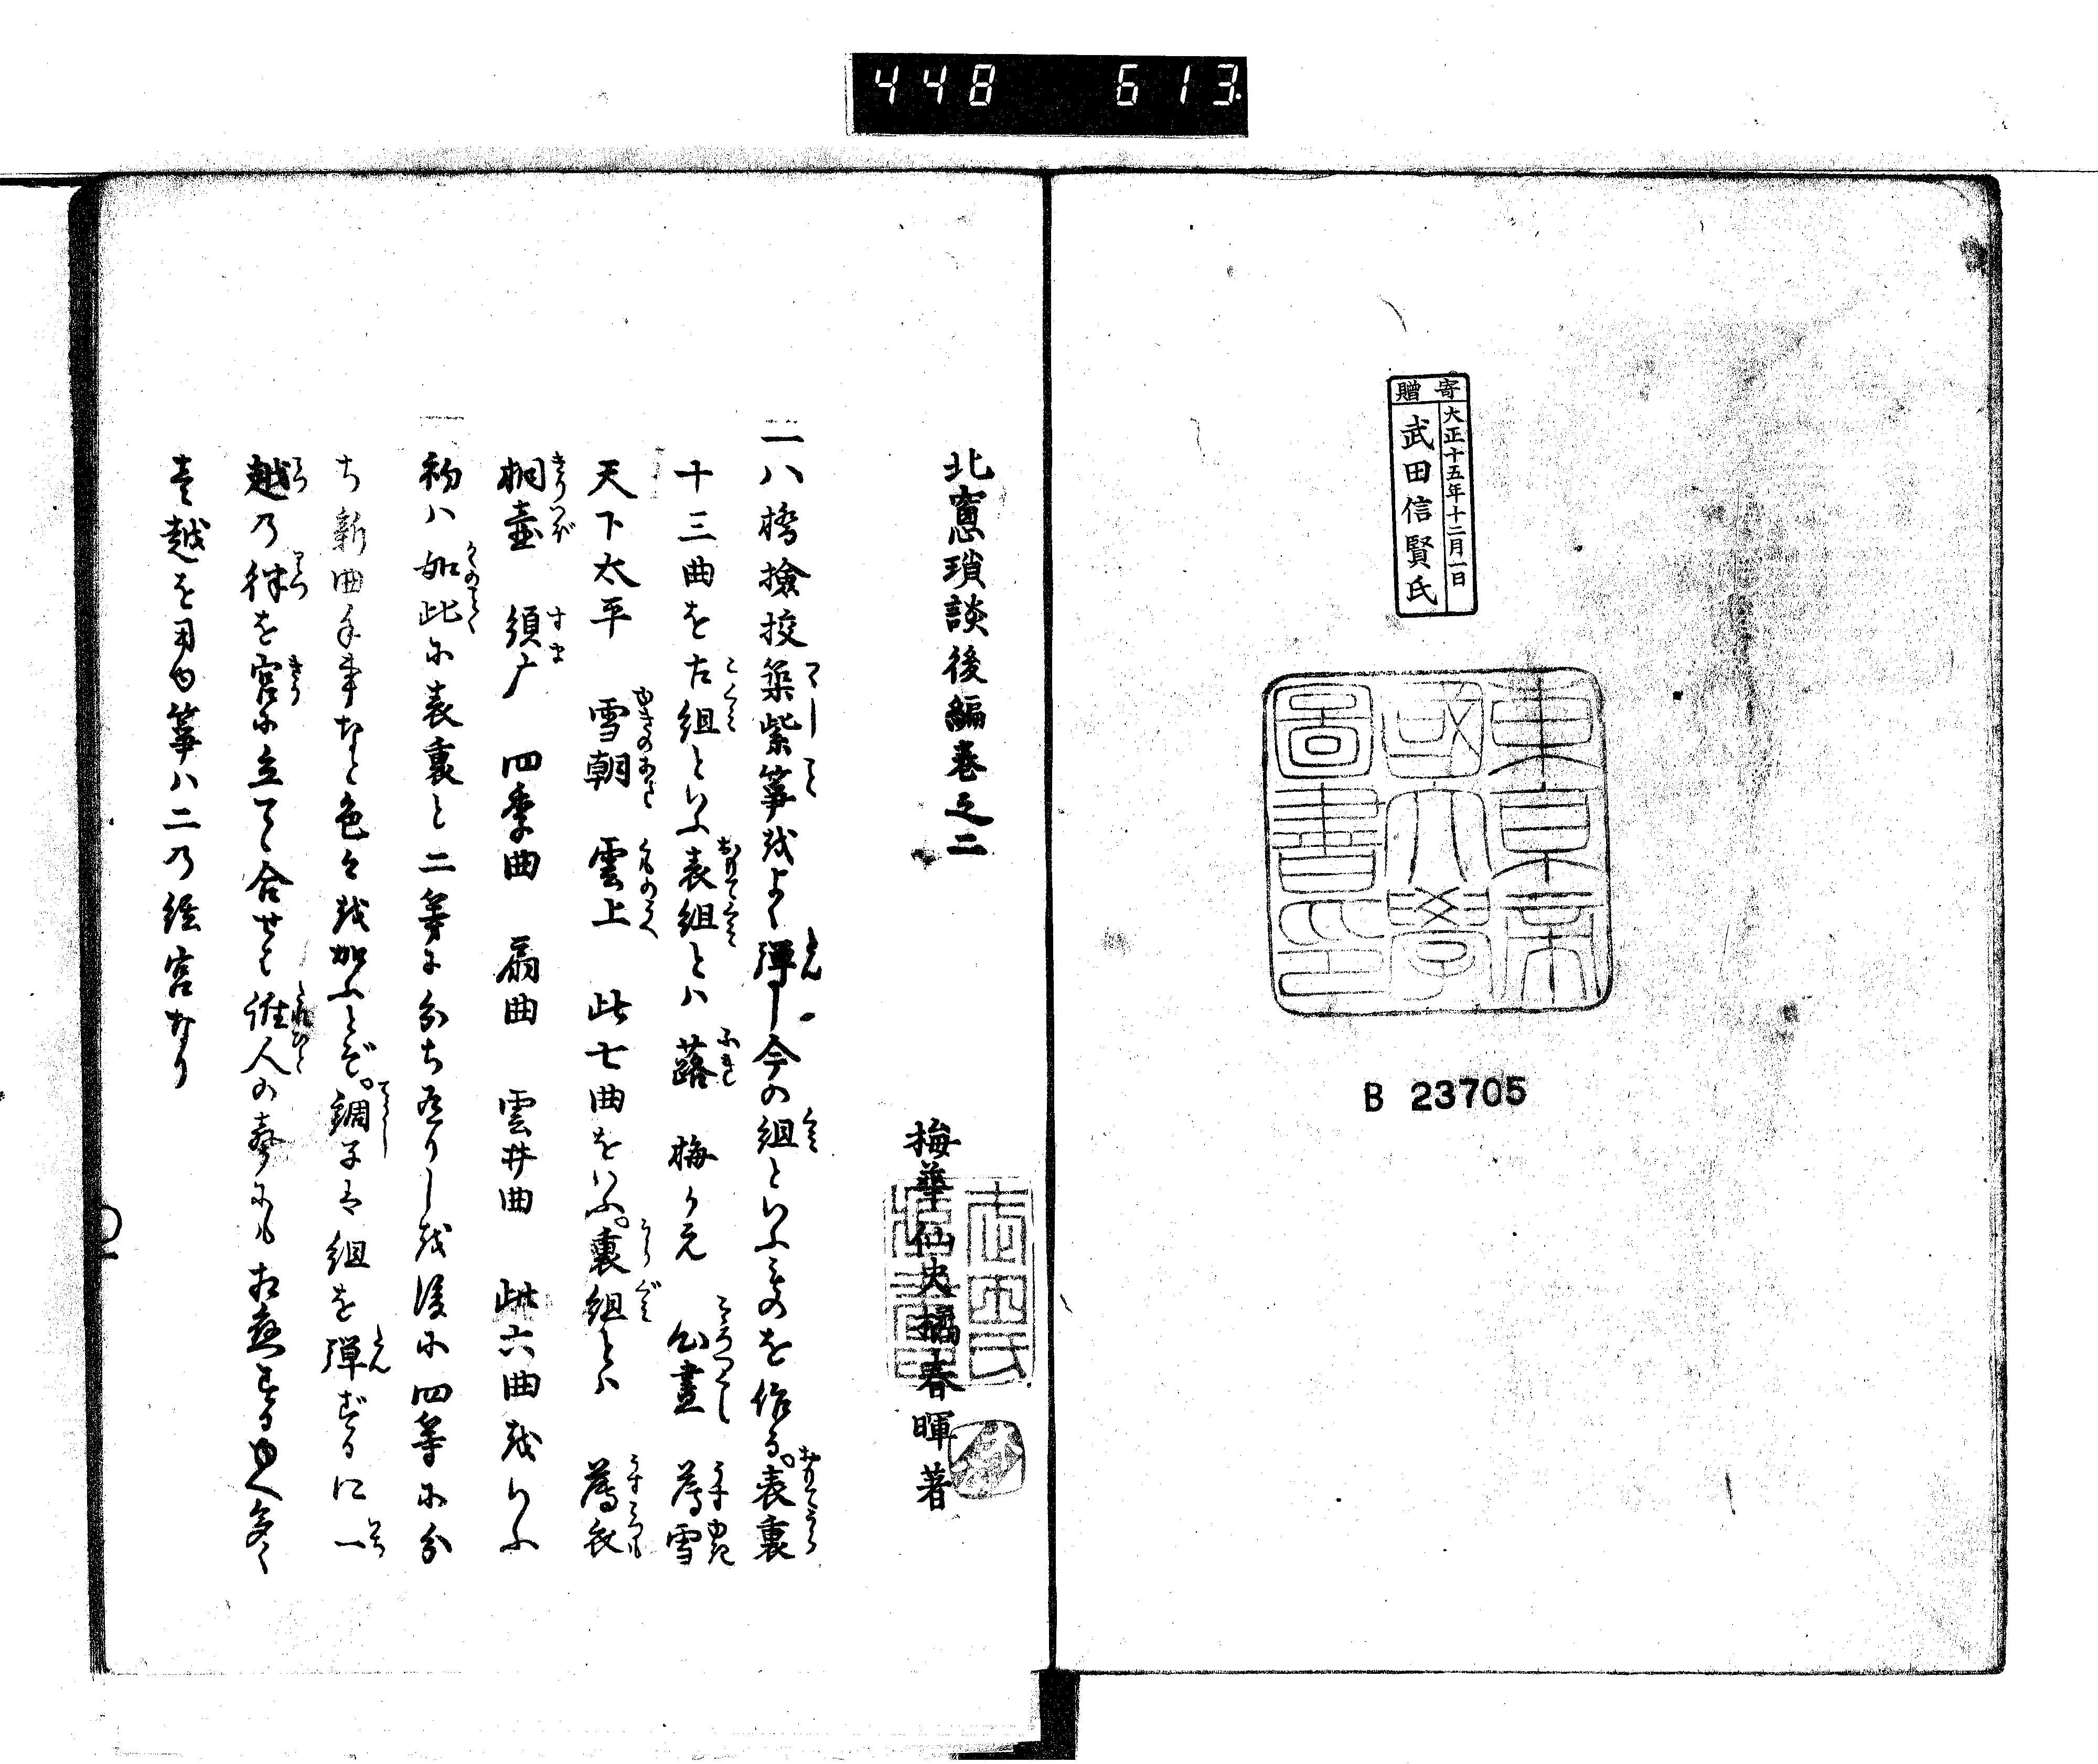 448 613.
寄贈
大正十五年十二月一日
武田信賢氏
東京帝
國大學
圖書印
B 23705
北窻瑣談後編巻之二
梅華仙史橘春暉著
一八橋撿挍築紫箏をよく弾し今の組といふものを作る。表裏
十三曲を古組といふ表組とハ 蕗 梅か元 心盡 薄雪
天下太平 雪朝 雲上 此七曲をいふ。裏組とハ 薄衣
桐壷 須广 四季曲 扇曲 雲井曲 此六曲をいふ
初ハ如此に表裏と二等に分ち有りしを後に四等に分
ち新曲手事など色々を加ふとぞ。調子は組を弾ずるに一
越の律を宮に立て合せば誰人の聲にも相應するゆへ多く
壱越を用ゆ箏ハ二の絃宮なり